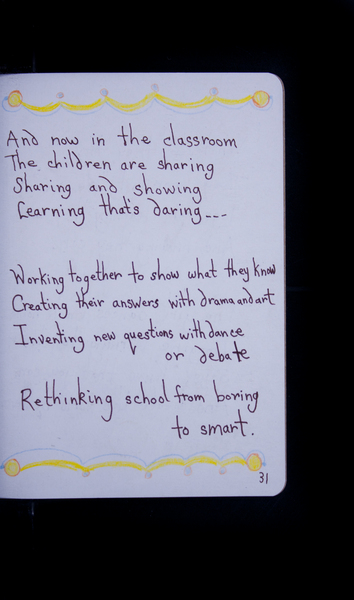 And now in the classroom
The children are sharing
Sharing and showing
Learning that's daring---
Working together to show what they know
Creating their answers with drama and art
Inventing new questions with dance
or debate
Rethinking school from boring
to smart.
31